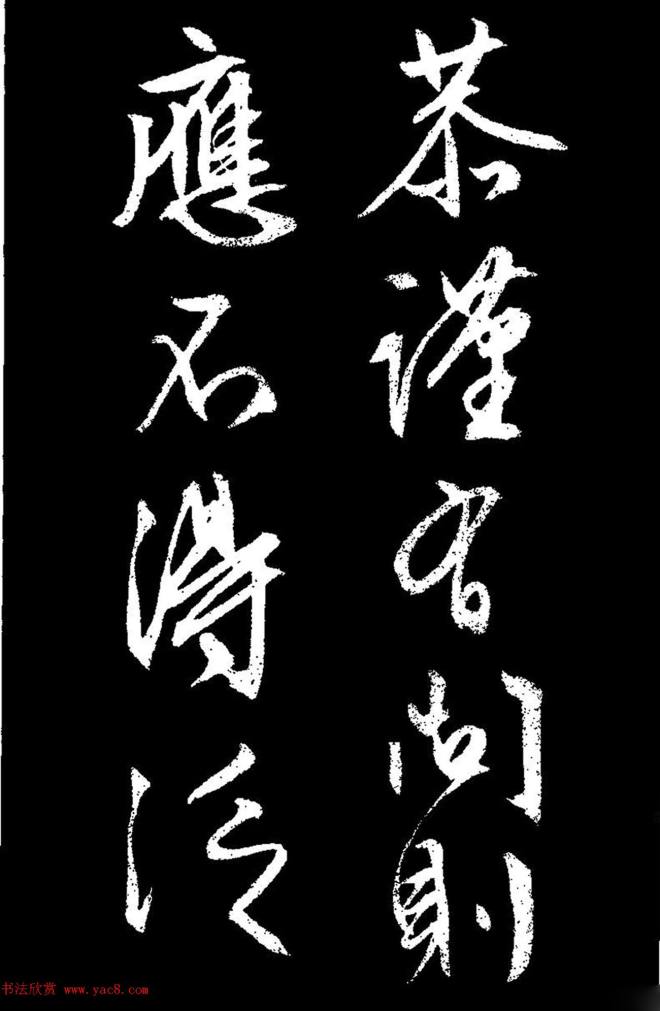 恭謹有問則
應不得泛
书法欣赏 www.yac8.com